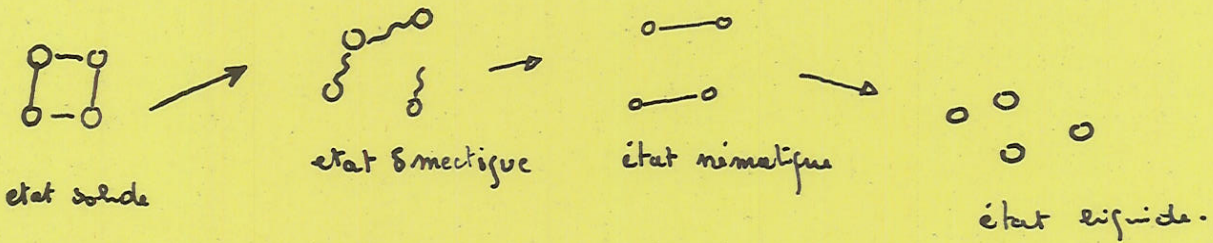 etat solide
etat smectique
état nématique
état liquide.